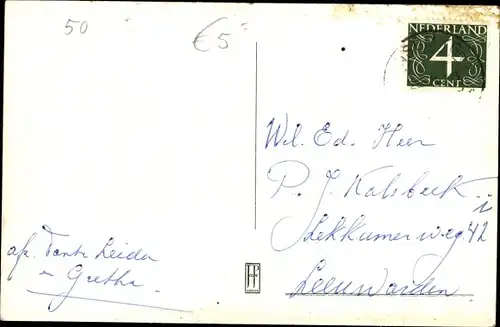 50
€5=
NEDERLAND
4
CENT
Wel. Ed. Heer
P. J. Kalsbeek
Lekkumerweg 42
Leeuwarden.
afz. Tante Leida
en Gretha.